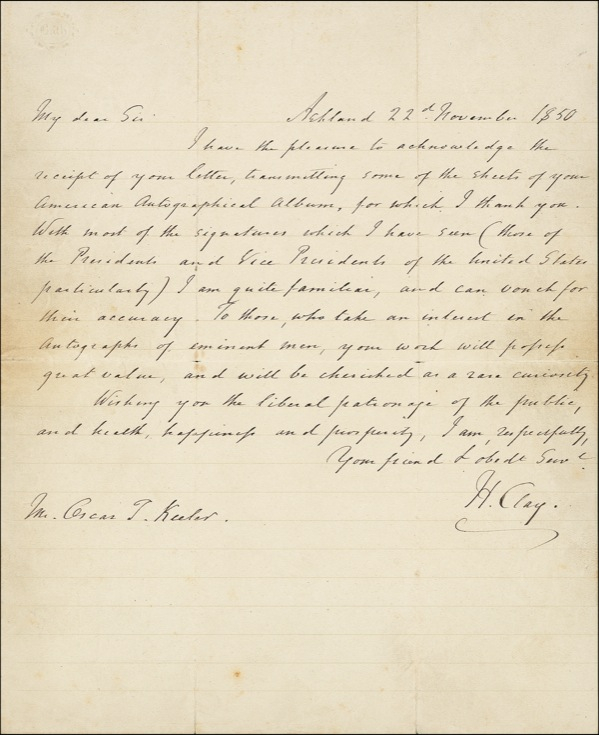 My dear Sir
Ashland 22d. November 1850
I have the pleasure to acknowledge the
receipt of your letter, transmitting some of the sheets of your
American Autographical Album, for which I thank you.
With most of the signatures which I have seen (those of
the Presidents and Vice Presidents of the United States
particularly) I am quite familiar, and can vouch for
their accuracy. To those, who take an interest in the
Autographs of eminent men, your work will possess
great value, and will be cherished as a rare curiosity.
Wishing you the liberal patronage of the public,
and health, happiness and prosperity, I am, respectfully,
Your friend & obedt Servt.
H. Clay.
Mr. Oscar T. Keeler.